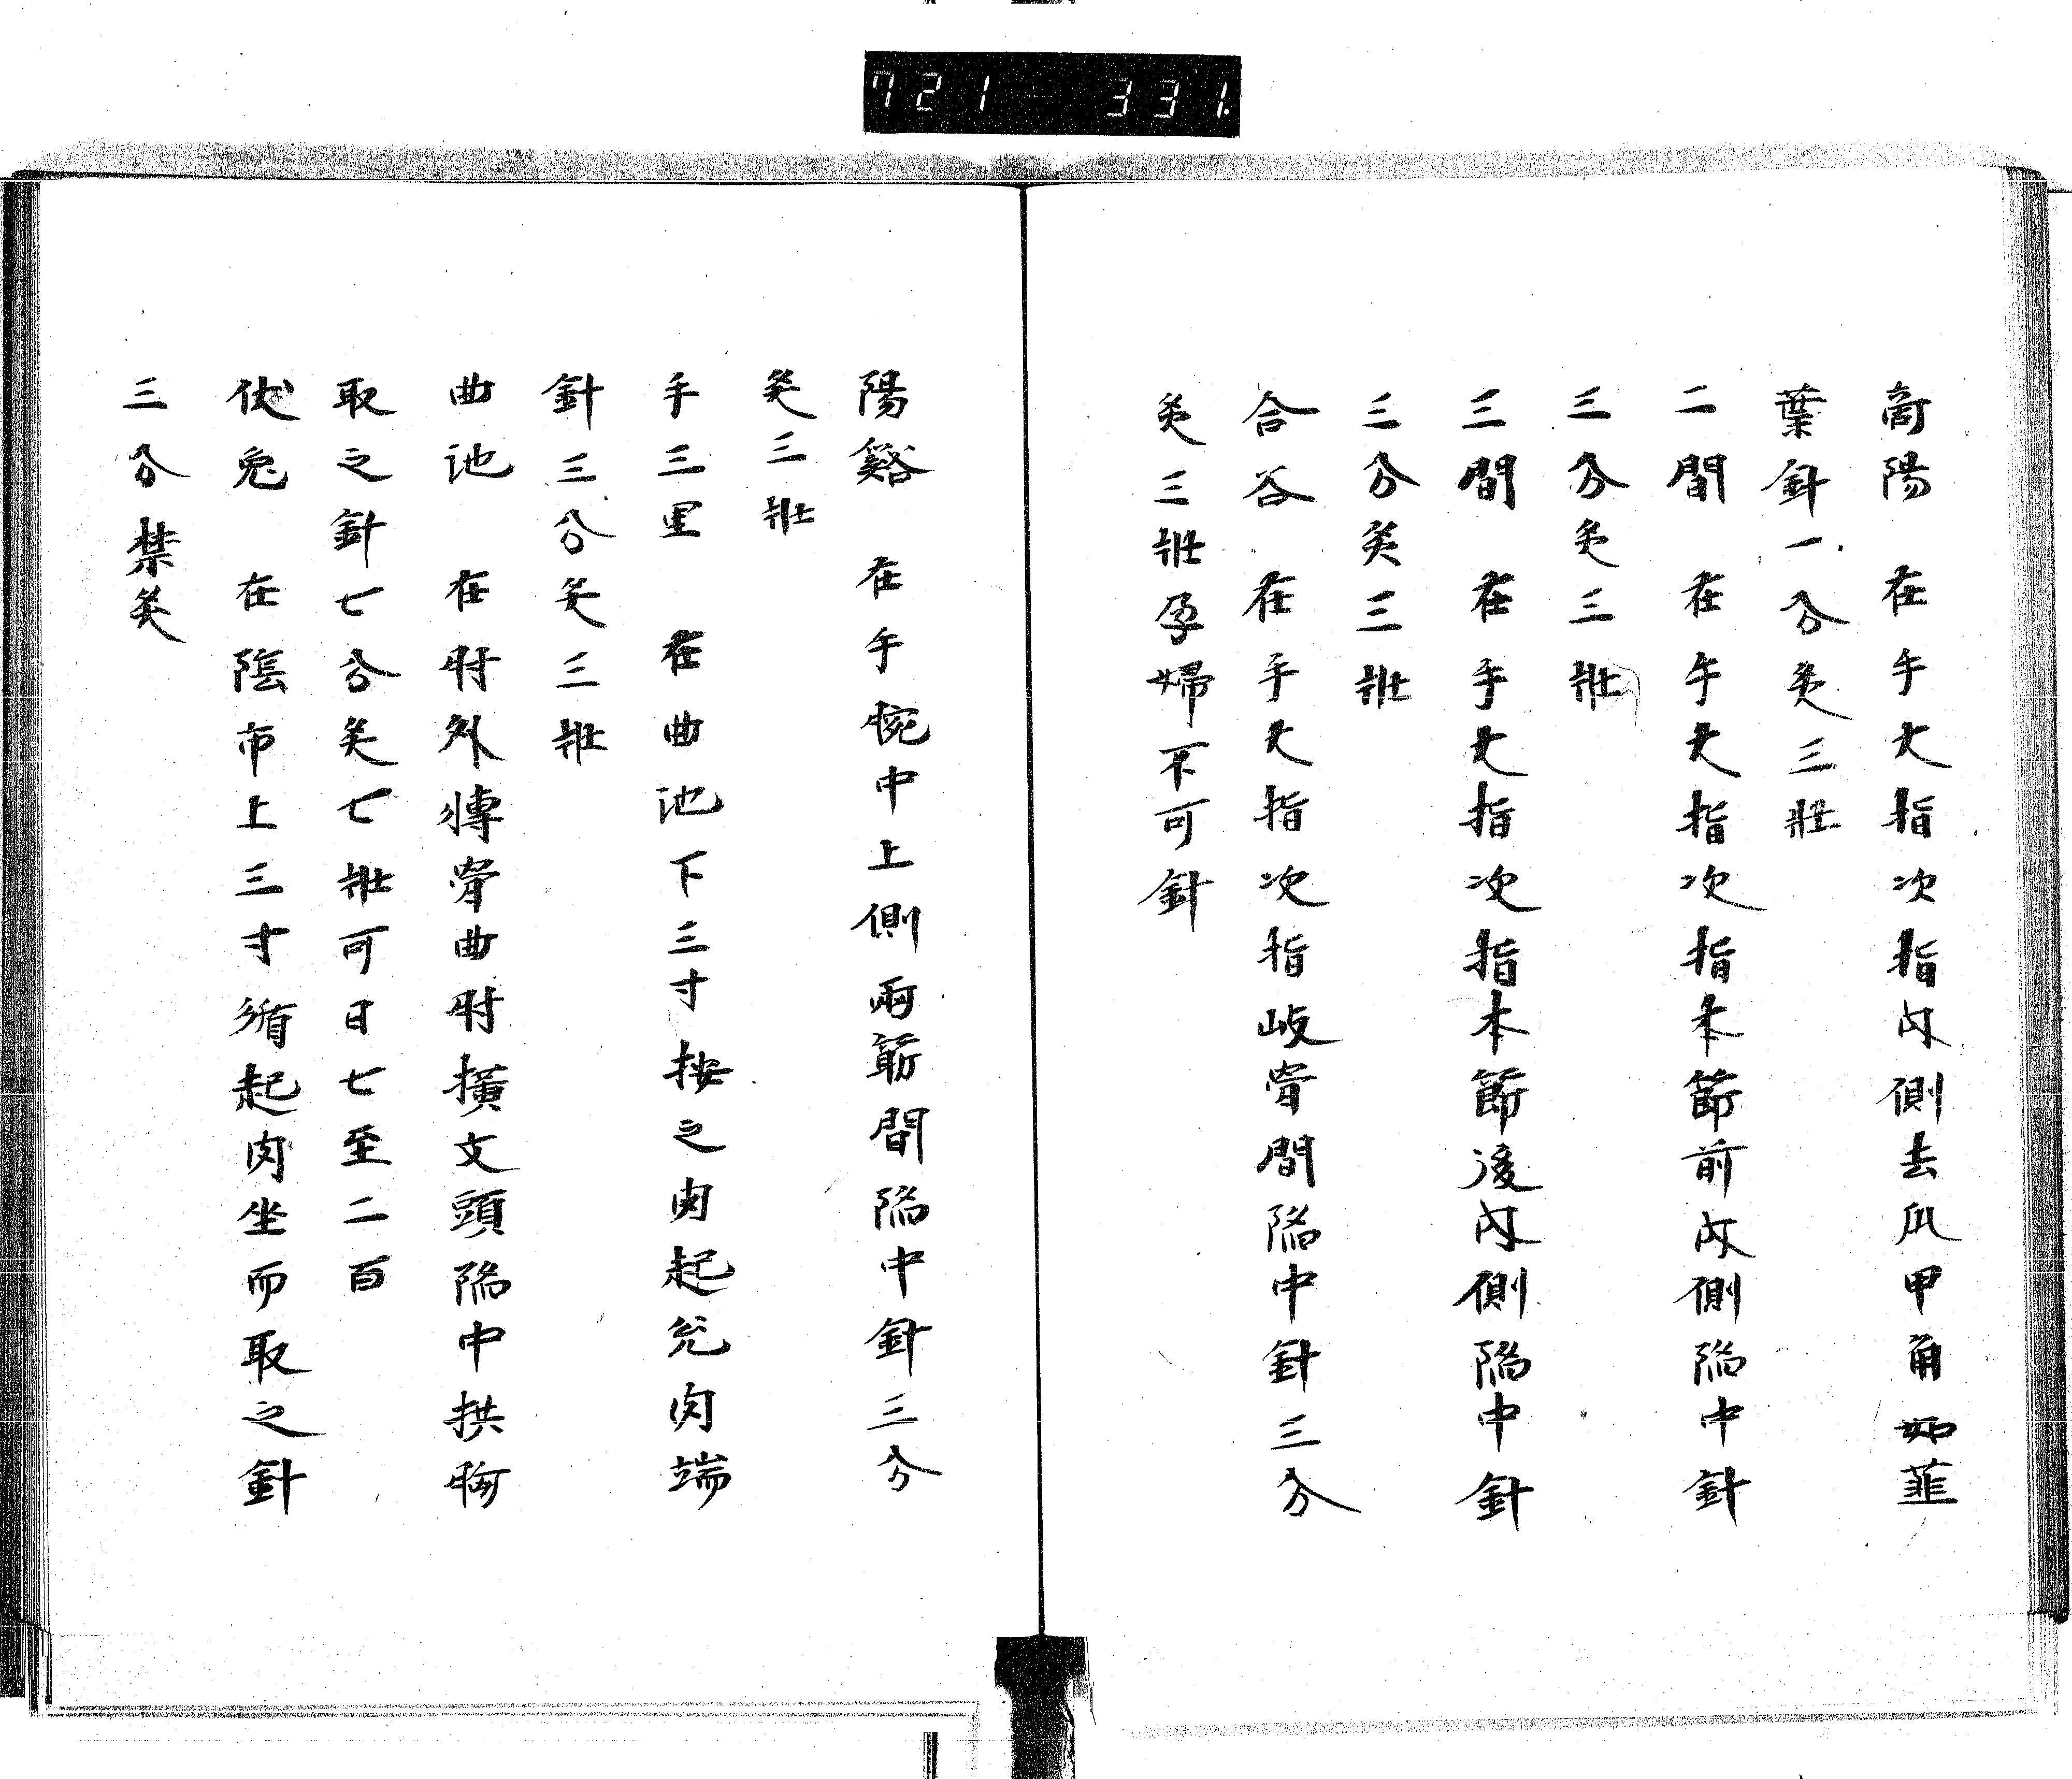 721 331
商陽 在手大指次指內側去爪甲角如韮
葉針一分灸三壯
二間 在手大指次指本節前內側陷中針
三分灸三壯
三間 在手大指次指本節後內側陷中針
三分灸三壯
合谷 在手大指次指岐骨間陷中針三分
灸三壯孕婦不可針
陽谿 在手惋中上側兩筋間陷中針三分
灸三壯
手三里 在曲池下三寸按之肉起兊肉端
針三分灸三壯
曲池 在肘外轉骨曲肘橫文頭陷中拱胸
取之針七分灸七壯可日七至二百
伏兔 在陰市上三寸循起肉坐而取之針
三分禁灸